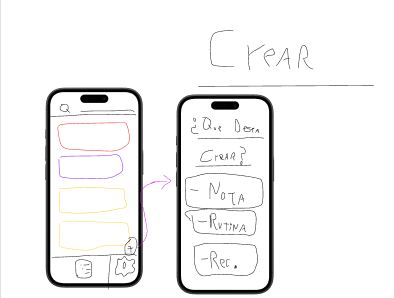 Crear
¿Que Desea
Crear?
- Nota
- Rutina
- Rec.